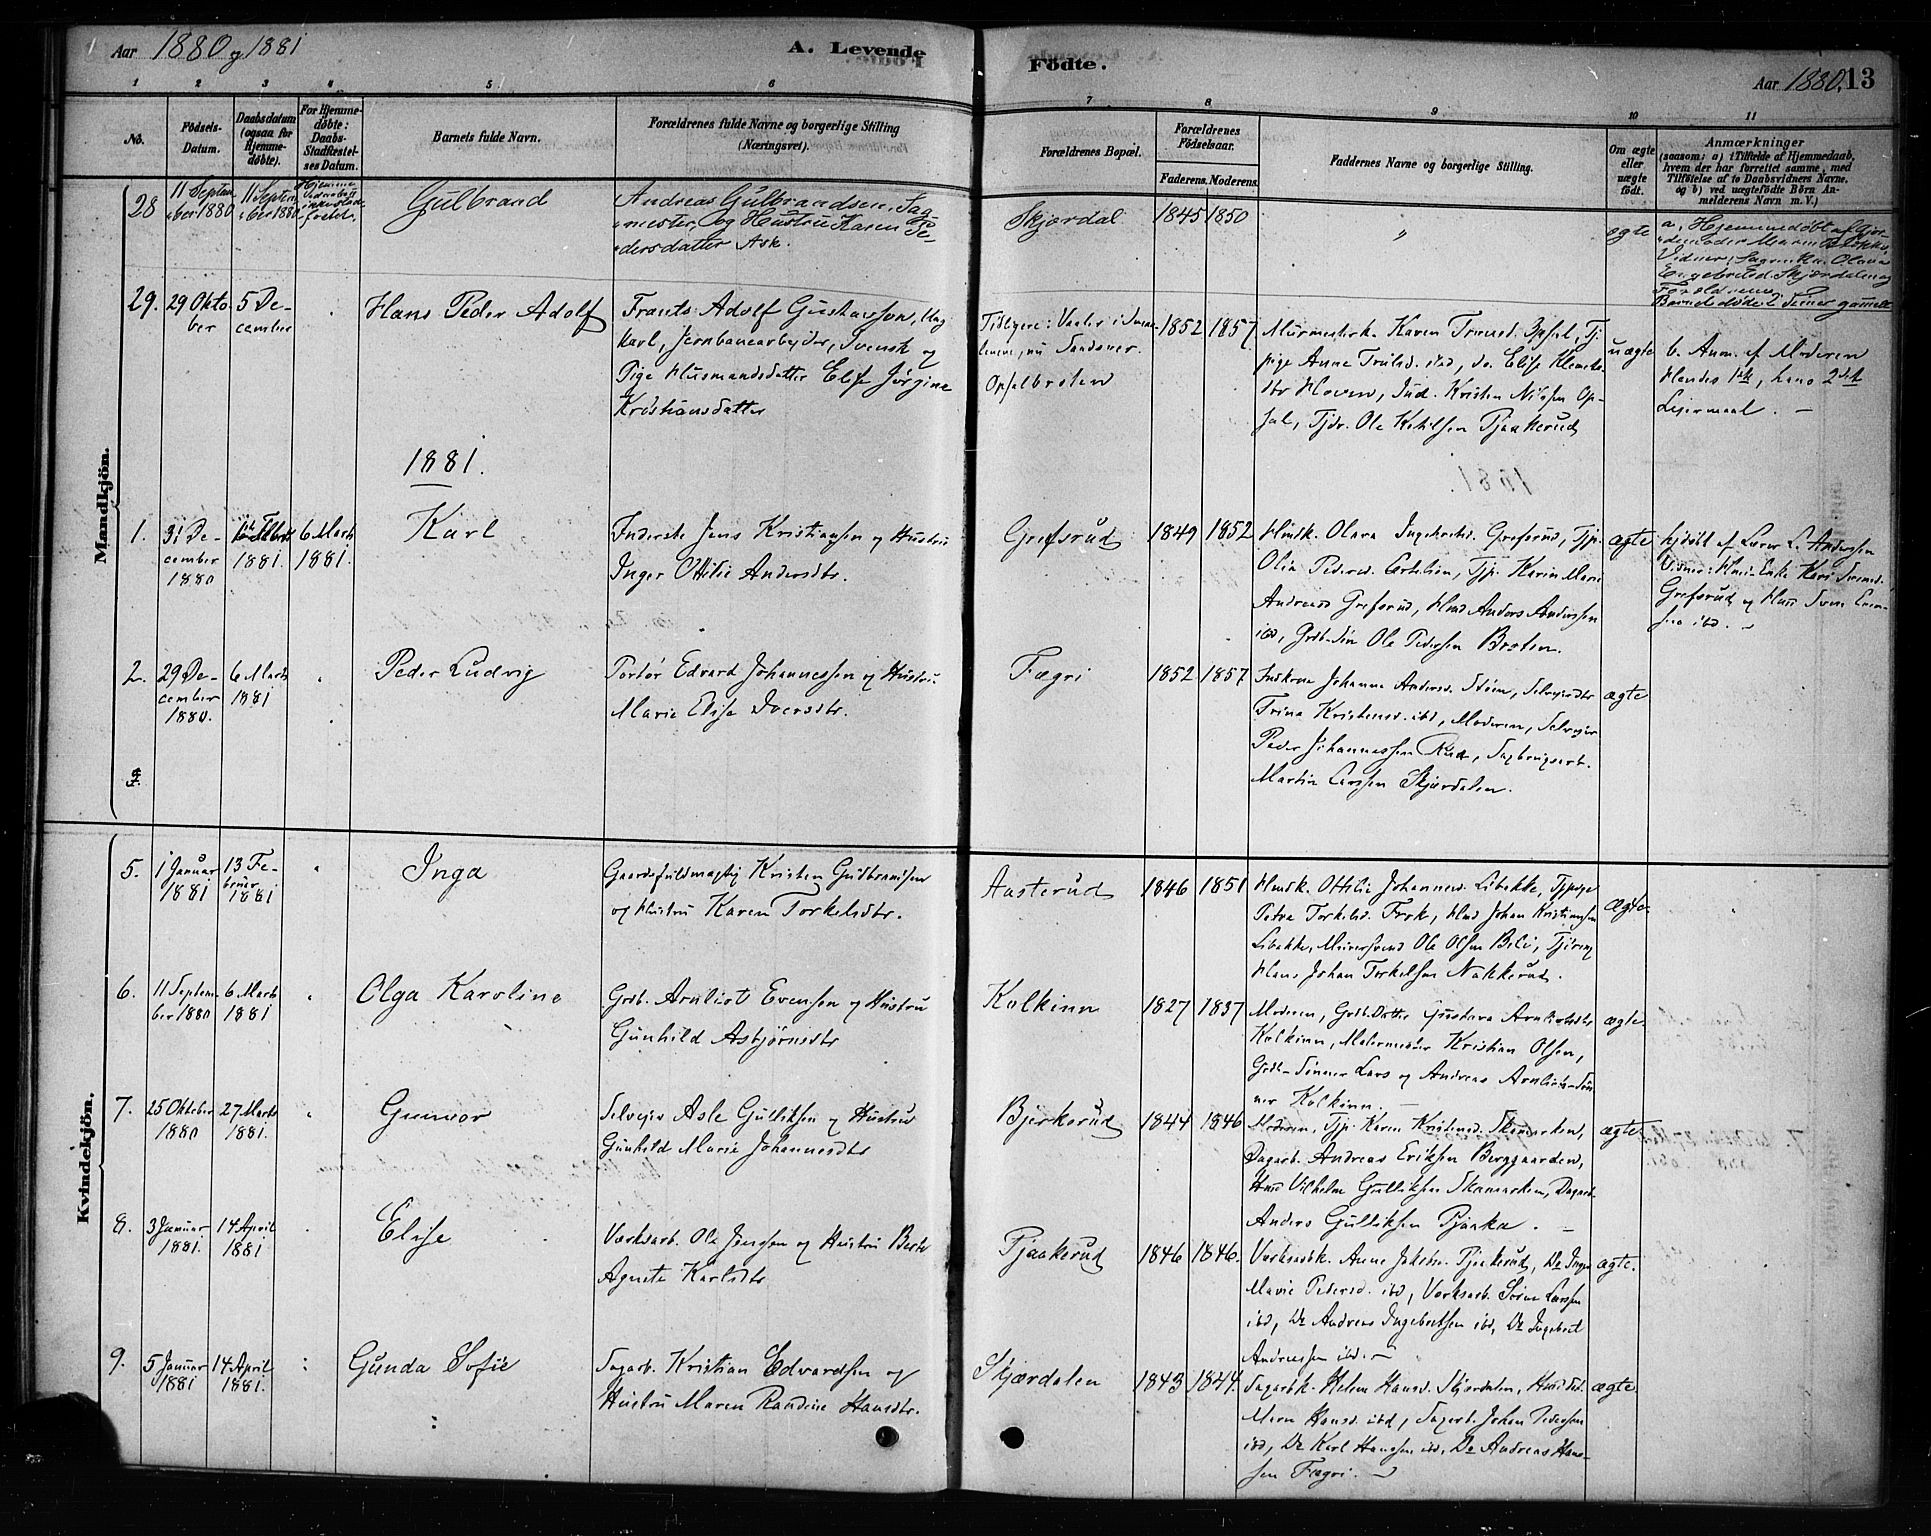 Aar 1880 og 1881
A. Levende
Fødte.
Aar 1880. 13
1 2 3 4 5 6 7 8 9 10 11
No.
Födsels-
Datum.
Daabsdatum
(ogsaa for
Hjemme-
döbte).
For Hjemme-
döbte:
Daabs-
Stadfæstel-
ses Datum.
Barnets fulde Navn.
Forældrenes fulde Navne og borgerlige Stilling
(Næringsvei).
Forældrenes Bopæl.
Forældrenes
Födselsaar.
Faderens. Moderens.
Faddernes Navne og borgerlige Stilling.
Om ægte
eller
uægte
födt.
Anmærkninger
(saasom: a) i Tilfælde af Hjemmedaab,
hvem der har forrettet samme, med
Tilföielse af to Daabsvidners Navne.
og b) ved uægtefödte Börn An-
melderens Navn m. V.)
Mandkjön.
28
11 Septem
ber 1880
11 Septem
ber 1880
Gulbrand
Andreas Gulbrandsen, Sag-
mester, og Hustru Karen Pe-
dersdatter Ask.
Skjørdal
1845 1850
"
ægte
a, Hjemmedøbt af Gjor-
demoder Maren
Vidner, Olava
Engebretsd. Skjærdalen og
Forældrene
Barnet døde 2 Timer gammelt
29.
29 Okto
ber
5 De-
cember
Hans Peder Adolf
Frants Adolf Gustavsson, Ung
karl, Jernbanearbejder, Svensk og
Pige Husmandsdatter Elise Jørgine
Kristiansdatter
Tidligere: Vaaler i Smaa-
lenene, nu Sandsver.
Opsalbroten
1852 1857
Murmesterk. Karen Opsal, Tj-
pige Anne Trulsd. ibd, do. Elise
Hoven, Ind. Kristen Nilssen Op-
sal, Tjdr. Ole Ketilsen Pjaakerud
uægte
b. Anm. af Moderen
Hendes 1ste, hans 2det
Leiermaal. –
1881.
1.
31 De-
cember
1880
1881.
6 Marts
1881.
Karl
Inderste Jens Kristiansen og Hustru
Inger Ottilie Andersdtr.
Grefsrud
1849 1852
Hmdk. Olava Ingebretsd. Grefsrud, Tjp.
Olia Pedersd. Tjp. Karin Marie
Andreasd Grefsrud, Hmd Anders Anderssen
ibd, Grdb. Søn Ole Pedersen Braten.
ægte
hjdøbt af Lærer L. Anderssen
Vidner: Hmd-Enke Kari Svensd.
Grefsrud og Hmd Sven
ibd. –
2.
29 De-
cember
1880.
6 Marts
1881
"
Peder Ludvig
Portør Edvard Johannessen og Hustru
Marie Elise Iversdtr.
Fægri
1852 1857
Johanne Andersd. Steen, Selveierdtr
Trina Kristensd. ibd, Moderen, Selveier
Peder Johannessen Rud, Sagbrugsarb.
Martin Larssen Skjærdalen.
ægte
Kvindekjön.
5.
1 Januar
1881
13 Fe-
bruar
1881
"
Inga
Gaardsfuldmægtig Kristen Gulbrandsen
og Hustru Karen Torkelsdtr.
Aasterud
1846 1851
Hmdk. Ottilie Johannesd. Libakke, Tjpige
Petra Torkelsd. Frok, Hmd Johan Kristiansen
Libakke, Meiersvend Ole Olsen Bili, Tjdreng
Hans Johan Torkelsen Nakkerud.
ægte.
6.
11 Septem
ber 1880
6 Marts
1881
"
Olga Karoline
Grdb. Arnliot Evensen og Hustru
Gunhild Asbjørnsdtr
Kolkinn
1827 1837
Moderen, Grdb. Datter Gustava Arnliotsdtr
Kolkinn, Malermester Kristian Olsen,
Grdb-Sønner Lars og Andreas Arnliots-Søn
ner Kolkinn. –
ægte.
7.
25 Oktober
1880
27 Marts
1881.
"
Gunvor
Selveier Asle Gulliksen og Hustru
Gunhild Marie Johannesdtr
Bjerkerud
1844 1846
Moderen, Tjp. Karen Kristensd. Skamarken,
Dagarb. Andreas Eriksen Berggaarden,
Hmd Vilhelm Gulliksen Skamarken, Dagarb.
Anders Gulliksen Pjaaka. –
ægte.
8.
3 Januar
1881.
14 April
1881
Elise
Værksarb. Ole Jenssen og Hustru Berte
Agnete Karlsdtr
Pjaakerud
1846 1846.
Værksarbk. Anne Jakobs. Pjaakerud, Do Inger
Marie Pedersd. ibd, Værksarb. Sørine Larssen
ibd, Do Andreas Ingebretsen ibd, Do Ingebret
Andreassen ibd. –
ægte.
9.
5 Januar
1881
14 April
1881.
"
Gunda Sofie
Sagarb. Kristian Edvardsen og
Hustru Maren Randine Hansdtr.
Skjærdalen
1843 1844.
Sagarbk. Helene Hansd. Skjærdalen,
Hansd. ibd, Sagarb. Johan Pedersen
ibd, Do Karl Hanssen ibd, Do Andreas Hans-
sen Fægri. –
ægte.